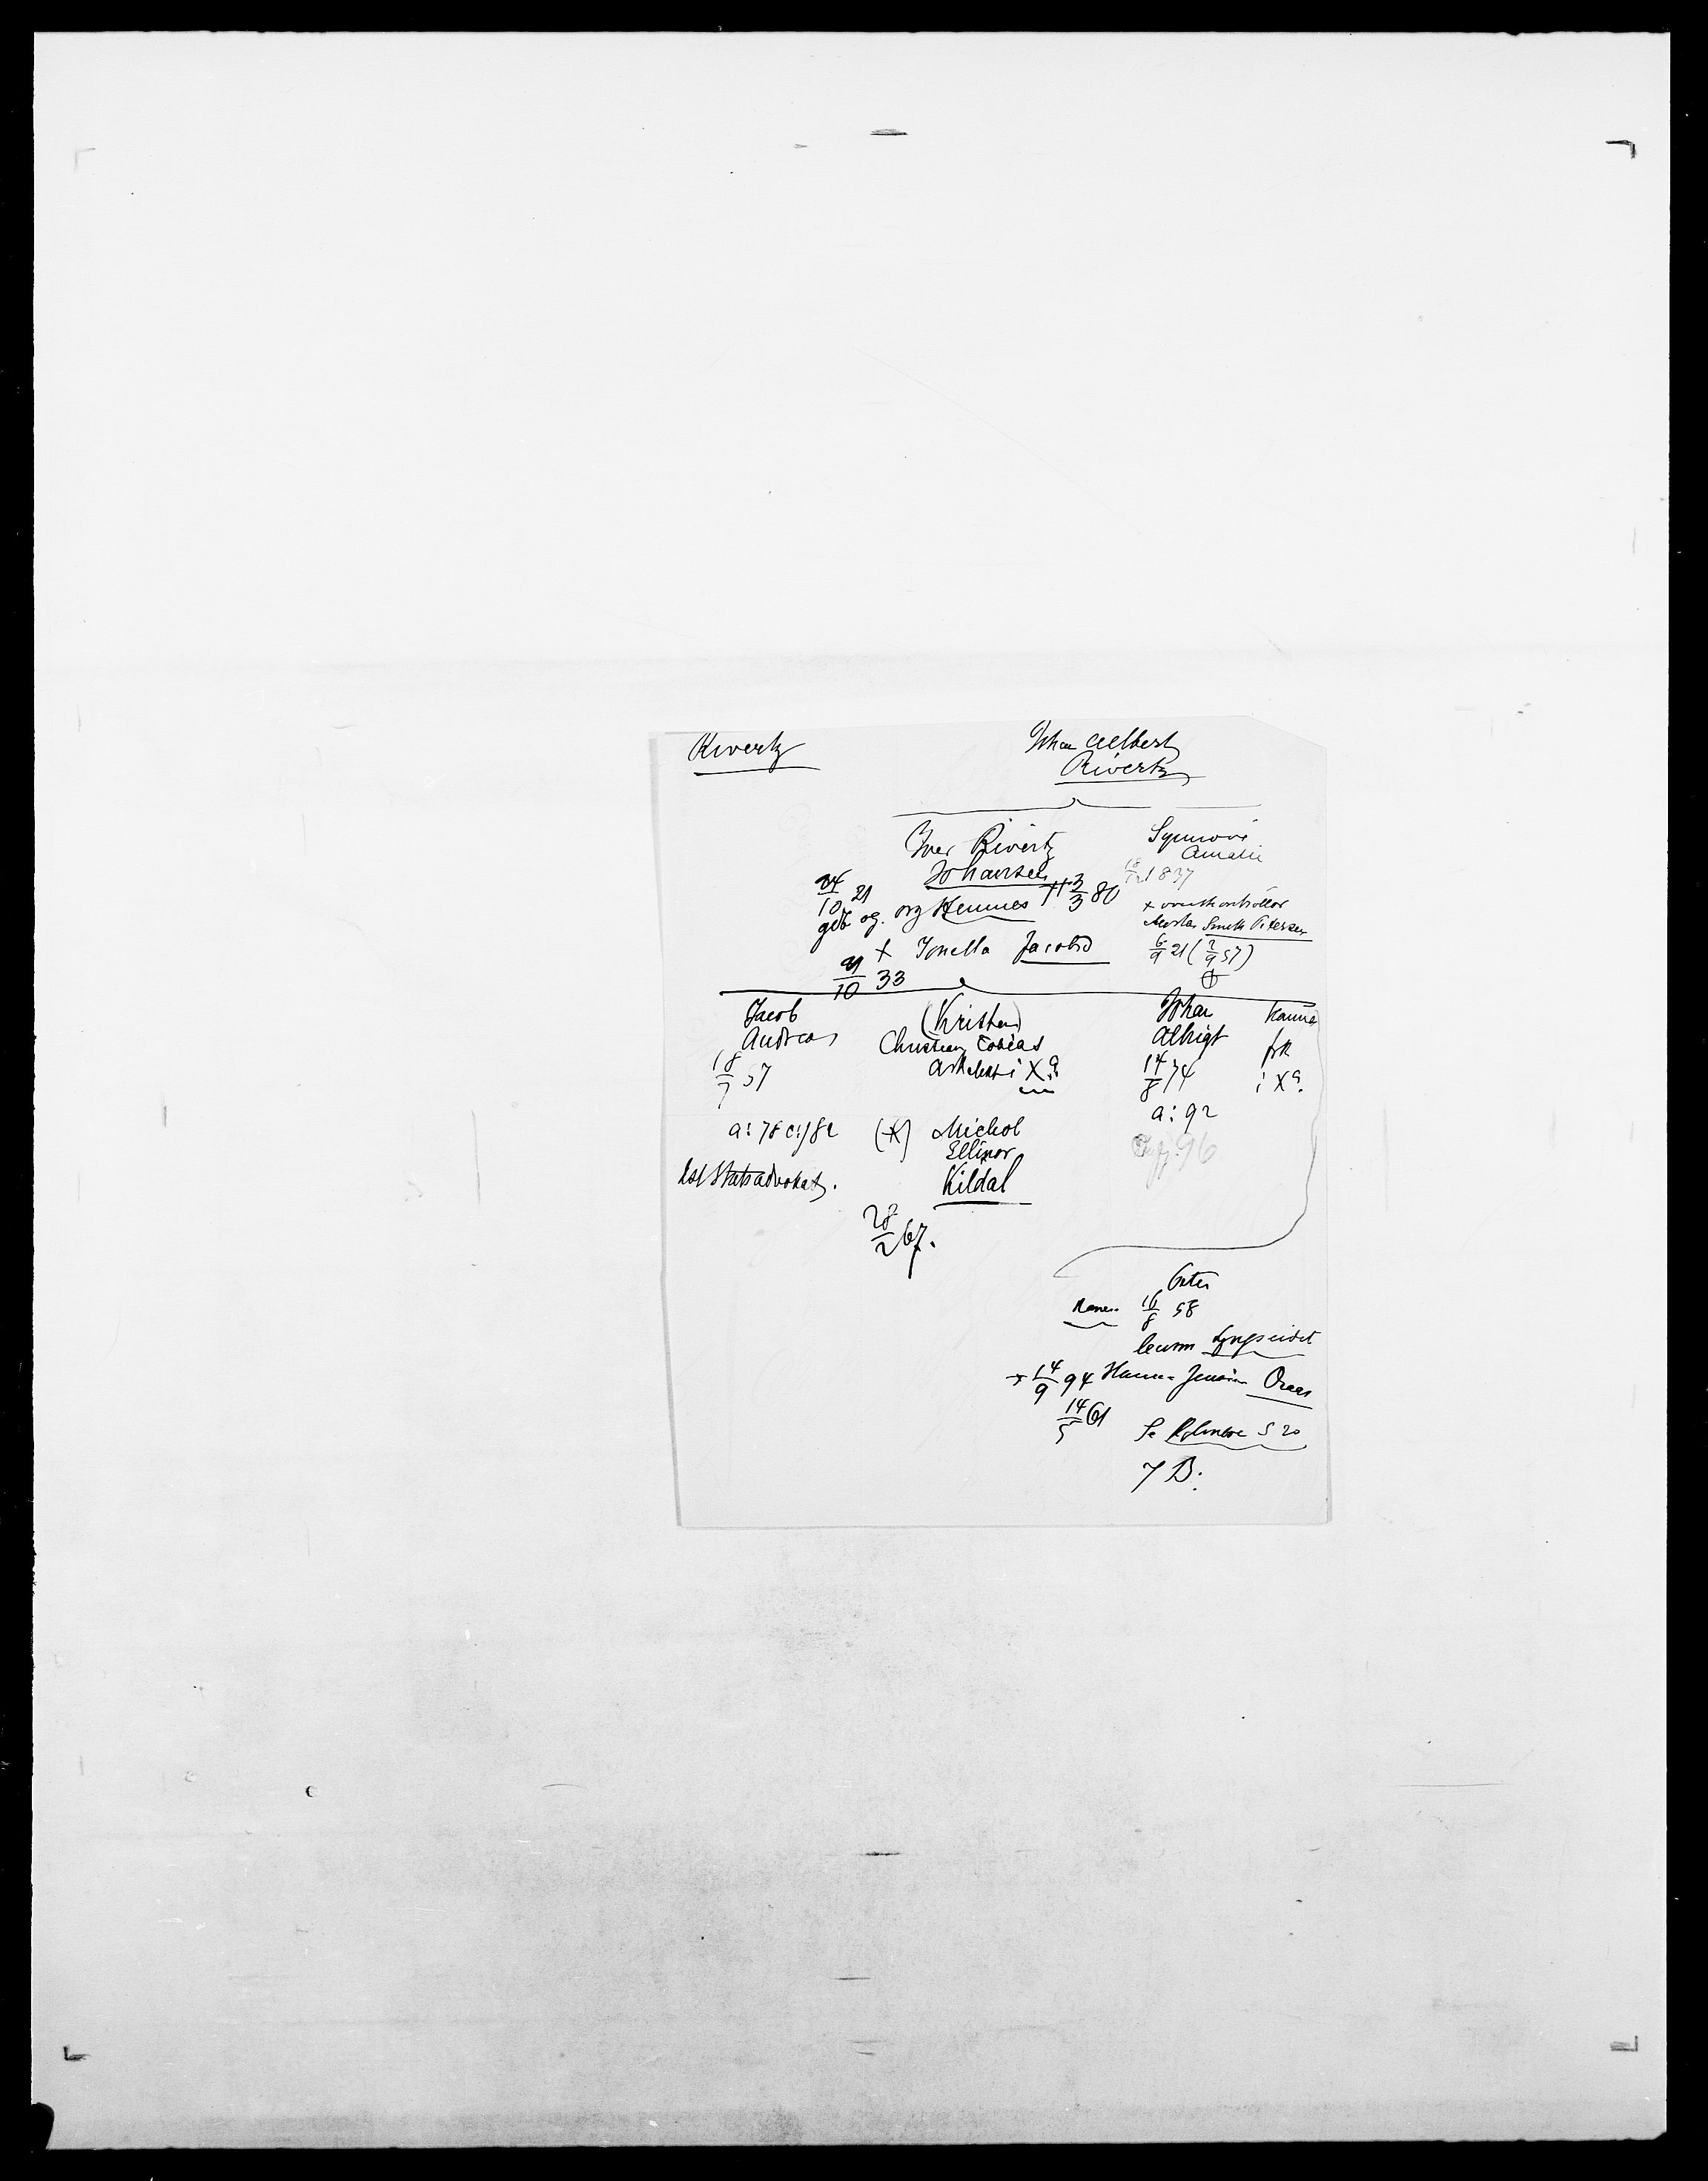 Rivertz
Johan Albert
Rivertz
Iver Rivertz
Johansen
24/10 21
† 3/3 80
gdb og. org Hemnes
× Jonella Jacobsd
21/10 33
Synnove
Amalie
1837
× 
Smith Petersen
6/9 21 (2/9 57)
Jacob
Andreas
18/7 57
a: 78 c: /82
Statsadvokat.
(Kristen)
Christian Tobias
Arkitekt i Xa.
(×) Michol
Ellinor
Kildal
28/2 67.
Johan
Albrigt
14/8 74
a: 92
96
Hanna
frk
i Xa.
Peter
16/8 58
lensm Lyngseidet
× 14/9 94 Hanna Jensine
14/5 61
S 20
7 B.